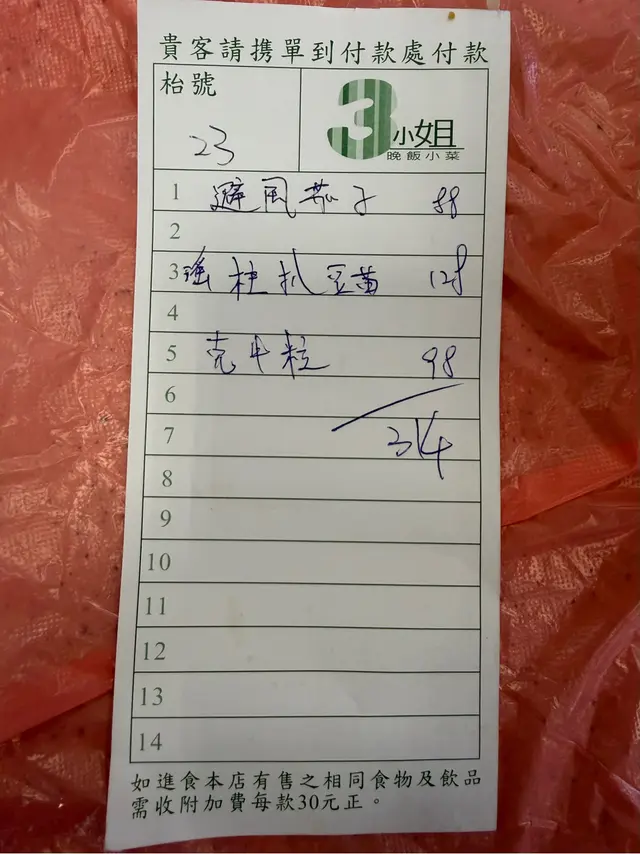 貴客請携單到付款處付款
枱號
23
3小姐
晚飯小菜
1 避風茄子 88
2
3 瑤柱扒豆苗 128
4
5 克牛粒 98
6
7 314
8
9
10
11
12
13
14
如進食本店有售之相同食物及飲品
需收附加費每款30元正。